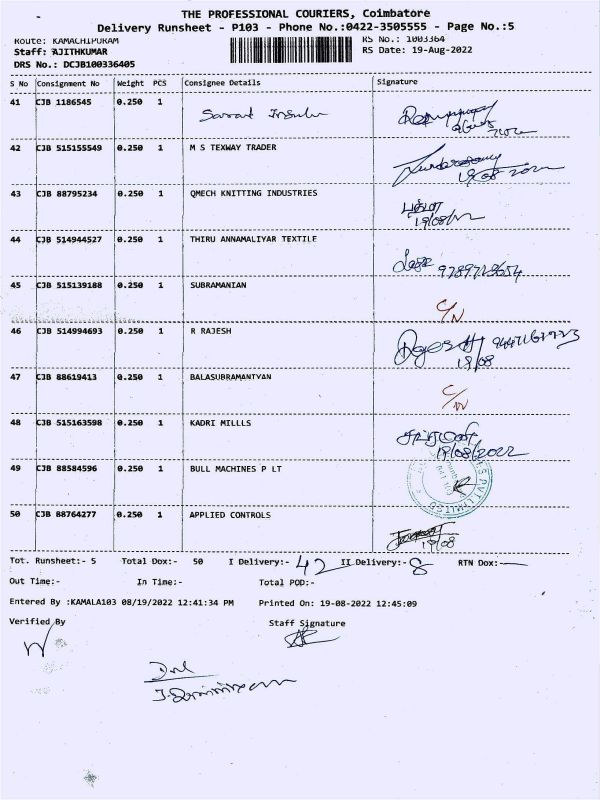 THE PROFESSIONAL COURIERS, Coimbatore
Delivery Runsheet - P103 - Phone No.:0422-3505555 - Page No.:5
Route: KAMACHIPURAM RS No.: 1003364
Staff: AJITHKUMAR RS Date: 19-Aug-2022
DRS No.: DCJB100336405
S No Consignment No Weight PCS Consignee Details Signature
41 CJB 1186545 0.250 1
42 CJB 515155549 0.250 1 M S TEXWAY TRADER
19/08/2022
43 CJB 88795234 0.250 1 QMECH KNITTING INDUSTRIES
19/08/
44 CJB 514944527 0.250 1 THIRU ANNAMALIYAR TEXTILE
45 CJB 515139188 0.250 1 SUBRAMANIAN
C/N
46 CJB 514994693 0.250 1 R RAJESH
19/08
47 CJB 88619413 0.250 1 BALASUBRAMANIYAN
C/N
48 CJB 515163598 0.250 1 KADRI MILLLS
19/08/2022
49 CJB 88584596 0.250 1 BULL MACHINES P LT
50 CJB 88764277 0.250 1 APPLIED CONTROLS
19/08
Tot. Runsheet:- 5 Total Dox:- 50 I Delivery:- 42 II Delivery:- 8 RTN Dox:-
Out Time:- In Time:- Total POD:-
Entered By :KAMALA103 08/19/2022 12:41:34 PM Printed On: 19-08-2022 12:45:09
Verified By Staff Signature